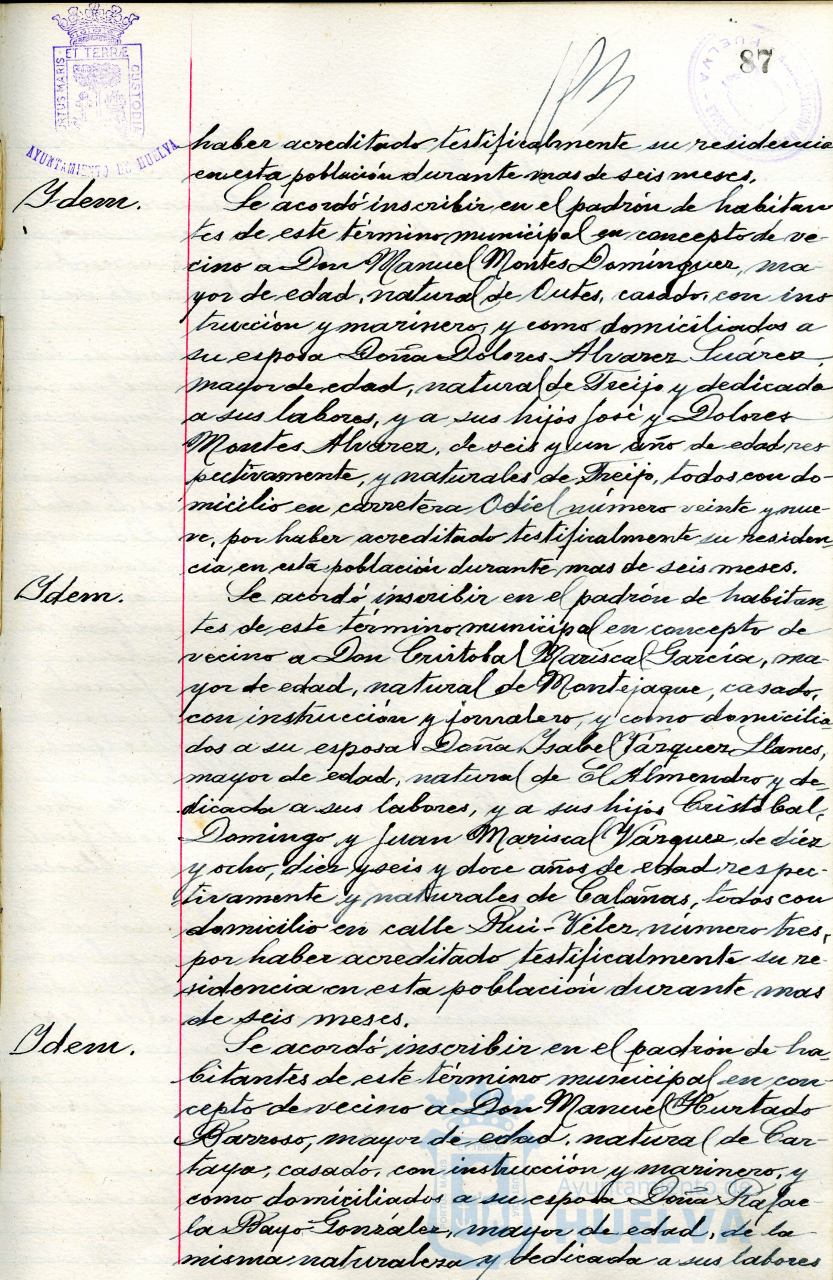 87
PORTUS MARIS ET TERRÆ CUSTODIA
AYUNTAMIENTO DE HUELVA
HUELVA
haber acreditado testificalmente su residencia
en esta población durante mas de seis meses.
Idem.
Se acordó inscribir en el padrón de habitan
tes de este término municipal en concepto de ve
cino a Don Manuel Montes Domínguez, ma
yor de edad, natural de Outes, casado, con ins
trucción y marinero, y como domiciliados a
su esposa Doña Dolores Alvarez Suárez,
mayor de edad, natural de Treijo y dedicada
a sus labores, y a sus hijos José y Dolores
Montes Alvarez, de seis y un año de edad res
pectivamente, y naturales de Treijo, todos con do-
micilio en carretera Odiel número veinte y nue-
ve, por haber acreditado testificalmente su residen-
cia en esta población durante mas de seis meses.
Idem.
Se acordó inscribir en el padrón de habitan-
tes de este término municipal en concepto de
vecino a Don Cristobal Mariscal García, ma-
yor de edad, natural de Montejaque, casado,
con instrucción y jornalero, y como domicilia-
dos a su esposa Doña Isabel Vázquez Llanes,
mayor de edad, natural de El Almendro y de-
dicada a sus labores, y a sus hijos Cristobal,
Domingo y Juan Mariscal Vázquez, de diez
y ocho, diez y seis y doce años de edad respec-
tivamente y naturales de Calañas, todos con
domicilio en calle Rui-Vélez número tres,
por haber acreditado testificalmente su re-
sidencia en esta población durante mas
de seis meses.
Idem.
Se acordó inscribir en el padrón de ha-
bitantes de este término municipal en con-
cepto de vecino a Don Manuel Hurtado
Barroso, mayor de edad, natural de Car-
taya, casado, con instrucción y marinero, y
como domiciliados a su esposa Doña Rafae
la Bayo González, mayor de edad, de la
misma naturaleza y dedicada a sus labores
Ayuntamiento de
HUELVA